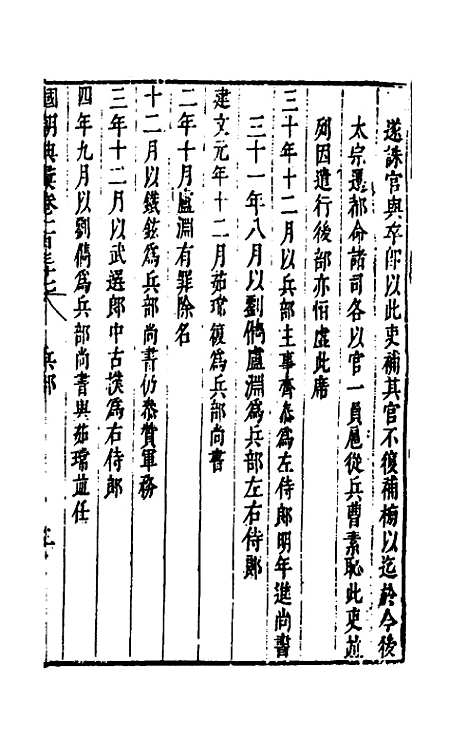 遂誅官與卒即以此吏補其官不復補榜以迄於今後
太宗遷都命諸司各以官一員扈從兵曹素恥此吏並
列因遣行後部亦恒虛此席
三十年十二月以兵部主事齊泰爲左侍郎明年進尚書
三十一年八月以劉儁盧淵爲兵部左右侍郎
建文元年十二月茹瑺復爲兵部尚書
二年十月盧淵有罪除名
十二月以鐵鉉爲兵部尚書仍叅贊軍務
三年十二月以武選郎中古樸爲右侍郎
四年九月以劉儁爲兵部尚書與茹瑺並任
國朝典彙卷一百三十七 兵部